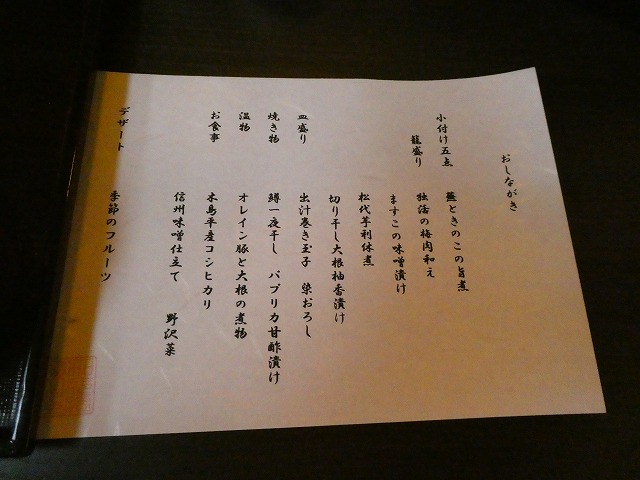 おしながき
小付け五点
籠盛り
蕪ときのこの旨煮
独活の梅肉和え
ますこの味噌漬け
松代芋利休煮
切り干し大根柚香漬け
皿盛り
出汁巻き玉子 染おろし
焼き物
鱒一夜干し パプリカ甘酢漬け
温物
オレイン豚と大根の煮物
お食事
木島平産コシヒカリ
信州味噌仕立て 野沢菜
デザート
季節のフルーツ